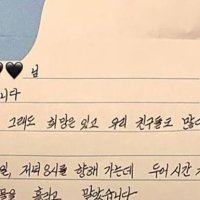 🖤🖤 님
니다
그래도 희망은 있고 우리 친구들도 많다
일, 저녁 8시를 향해 가는데 두어 시간
물을 흘리고 말았습니다